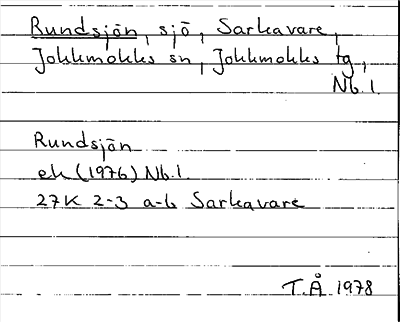 Rundsjön, sjö, Sarkavare,
Jokkmokks sn, Jokkmokks tg,
Nb.l.
Rundsjön
ek (1976) Nb.l.
27K 2-3 a-b Sarkavare
T.Å 1978